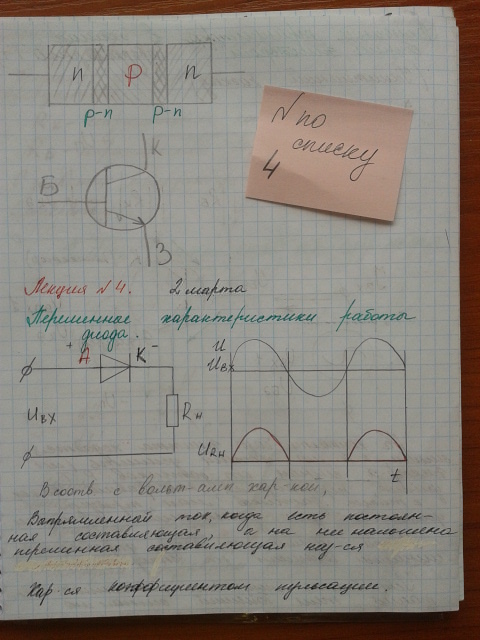 n p n
p-n p-n
N по
списку
4
К
Б
Э
Лекция N 4. 2 марта
Переменные характеристики работы
диода.
+ А К -
U
Uвх
Uвх
Rн
URн
t
В соотв с вольт-амп хар-кой,
Выпрямленный ток, когда есть постоян-
ная составляющая, а на неё наложена
переминная составляющая наз-ся
Хар-ся коэффициентом пульсации.